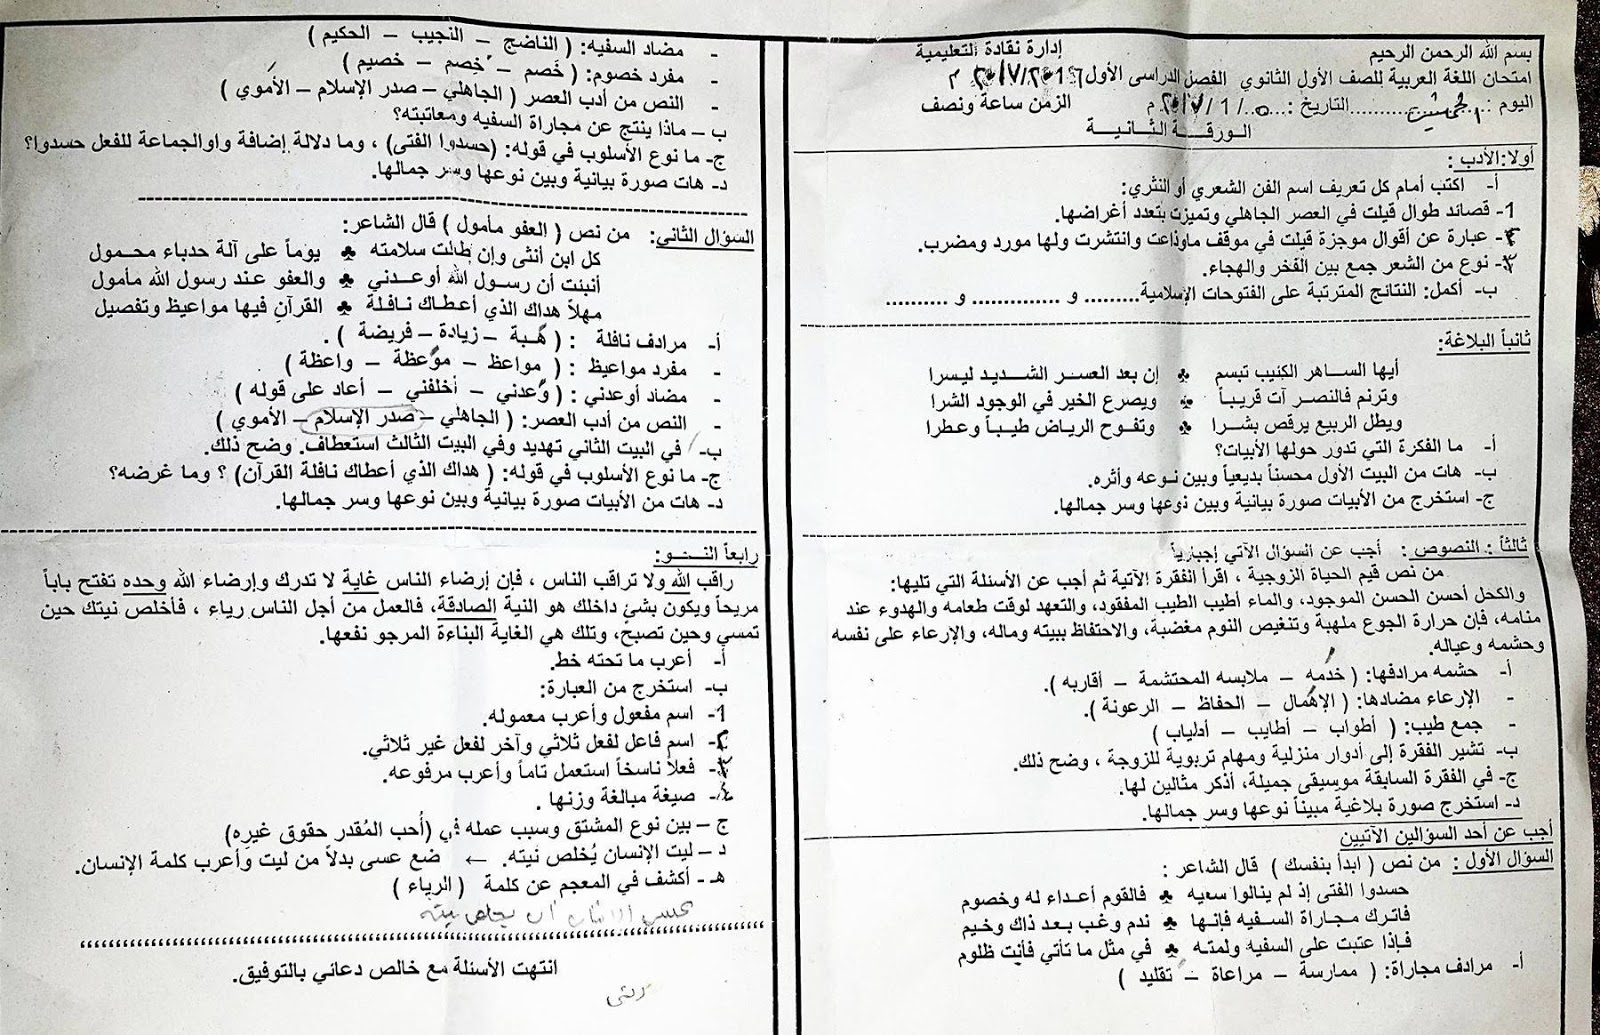 بسم الله الرحمن الرحيم
إدارة نقادة التعليمية
امتحان اللغة العربية للصف الأول الثانوي الفصل الدراسى الأول ٢٠١٧/٢٠١٦ م
اليوم : ................ التاريخ : ..../1/٢٠١٧ م الزمن ساعة ونصف
الورقـــة الثـانيـــة
أولا:الأدب :
أ- اكتب أمام كل تعريف اسم الفن الشعري أو النثري:
1- قصائد طوال قيلت في العصر الجاهلي وتميزت بتعدد أغراضها.
٢- عبارة عن أقوال موجزة قيلت في موقف ماوذاعت وانتشرت ولها مورد ومضرب.
٣- نوع من الشعر جمع بين الفخر والهجاء.
ب- أكمل: النتائج المترتبة على الفتوحات الإسلامية......... و .............. و ..........
ثانياً البلاغة:
أيها الســـاهر الكئيب تبسم ♣ إن بعد العســر الشـــديد ليسرا
وترنم فالنصـر آت قريبـاً ♣ ويصرع الخير في الوجود الشرا
ويطل الربيع يرقص بشـرا ♣ وتفـوح الرياض طيبـاً وعـطرا
أ- ما الفكرة التي تدور حولها الأبيات؟
ب- هات من البيت الأول محسناً بديعياً وبين نـوعه وأثره.
ج- استخرج من الأبيات صورة بيانية وبين نوعها وسر جمالها.
ثالثاً : النصوص : أجب عن السؤال الآتي إجبارياً
من نص قيم الحياة الزوجية ، اقرأ الفقرة الآتية ثم أجب عن الأسئلة التي تليها:
والكحل أحسن الحسن الموجود، والماء أطيب الطيب المفقود، والتعهد لوقت طعامه والهدوء عند
منامه، فإن حرارة الجوع ملهبة وتنغيص النوم مغضبة، والاحتفاظ ببيته وماله، والإرعاء على نفسه
وحشمه وعياله.
أ- حشمه مرادفها: ( خدمه – ملابسه المحتشمة – أقاربه ).
- الإرعاء مضادها: ( الإهمال – الحفاظ – الرعونة ).
- جمع طيب: ( أطواب – أطايب – أطياب )
ب- تشير الفقرة إلى أدوار منزلية ومهام تربوية للزوجة ، وضح ذلك.
ج- في الفقرة السابقة موسيقى جميلة، أذكر مثالين لها.
د- استخرج صورة بلاغية مبيناً نوعها وسر جمالها.
أجب عن أحد السؤالين الآتيين
السؤال الأول : من نص ( ابدأ بنفسك ) قال الشاعر :
حسدوا الفتى إذ لم ينالوا سعيه ♣ فالقوم أعـداء له وخصوم
فاترك مجـاراة السـفيه فإنهـا ♣ ندم وغب بـعد ذاك وخيم
فـإذا عتبت على السفيه ولمتـه ♣ في مثل ما تأتي فأنت ظلوم
أ- مرادف مجاراة: ( ممارسة – مراعاة – تقليد )
- مضاد السفيه: ( الناضج – النجيب – الحكيم )
- مفرد خصوم: ( خَصم – خِصم – خصيم )
- النص من أدب العصر ( الجاهلي – صدر الإسلام – الأموي )
ب – ماذا ينتج عن مجاراة السفيه ومعاتبته؟
ج- ما نوع الأسلوب في قوله: (حسدوا الفتى) ، وما دلالة إضافة واوالجماعة للفعل حسدوا؟
د- هات صورة بيانية وبين نوعها وسر جمالها.
السؤال الثاني: من نص ( العفو مأمول ) قال الشاعر:
كل ابن أنثى وإن طالت سلامته ♣ يوماً على آلة حدباء محـمول
أنبئت أن رسـول الله أوعـدني ♣ والعفو عند رسول الله مأمول
مهلاً هداك الذي أعـطاك نافـلة ♣ القرآن فيها مواعيظ وتفصيل
أ- مرادف نافلة : ( هبة – زيادة – فريضة ) .
- مفرد مواعيظ : ( مواعظ – موعظة – واعظة )
- مضاد أوعدني : ( وعدني – أخلفني – أعاد على قوله )
- النص من أدب العصر: ( الجاهلي – صدر الإسلام – الأموي )
ب- في البيت الثاني تهديد وفي البيت الثالث استعطاف. وضح ذلك.
ج- ما نوع الأسلوب في قوله: ( هداك الذي أعطاك نافلة القرآن) ؟ وما غرضه؟
د- هات من الأبيات صورة بيانية وبين نوعها وسر جمالها.
رابعاً النحـو:
راقب الله ولا تراقب الناس ، فإن إرضاء الناس غاية لا تدرك وإرضاء الله وحده تفتح باباً
مريحاً ويكون بشئ داخلك هو النية الصادقة، فالعمل من أجل الناس رياء ، فأخلص نيتك حين
تمسي وحين تصبح، وتلك هي الغاية البناءة المرجو نفعها.
أ- أعرب ما تحته خط.
ب- استخرج من العبارة:
1- اسم مفعول وأعرب معموله.
٢- اسم فاعل لفعل ثلاثي وآخر لفعل غير ثلاثي.
٣- فعلاً ناسخاً استعمل تاماً وأعرب مرفوعه.
٤- صيغة مبالغة وزنها .
ج – بين نوع المشتق وسبب عمله في (أُحب المُقدر حقوق غيرِه)
د – ليت الإنسان يُخلص نيته. ← ضع عسى بدلاً من ليت وأعرب كلمة الإنسان.
هـ - أكشف في المعجم عن كلمة ( الرياء )
عسى الإنسان أن يخلص نيته
انتهت الأسئلة مع خالص دعائي بالتوفيق.